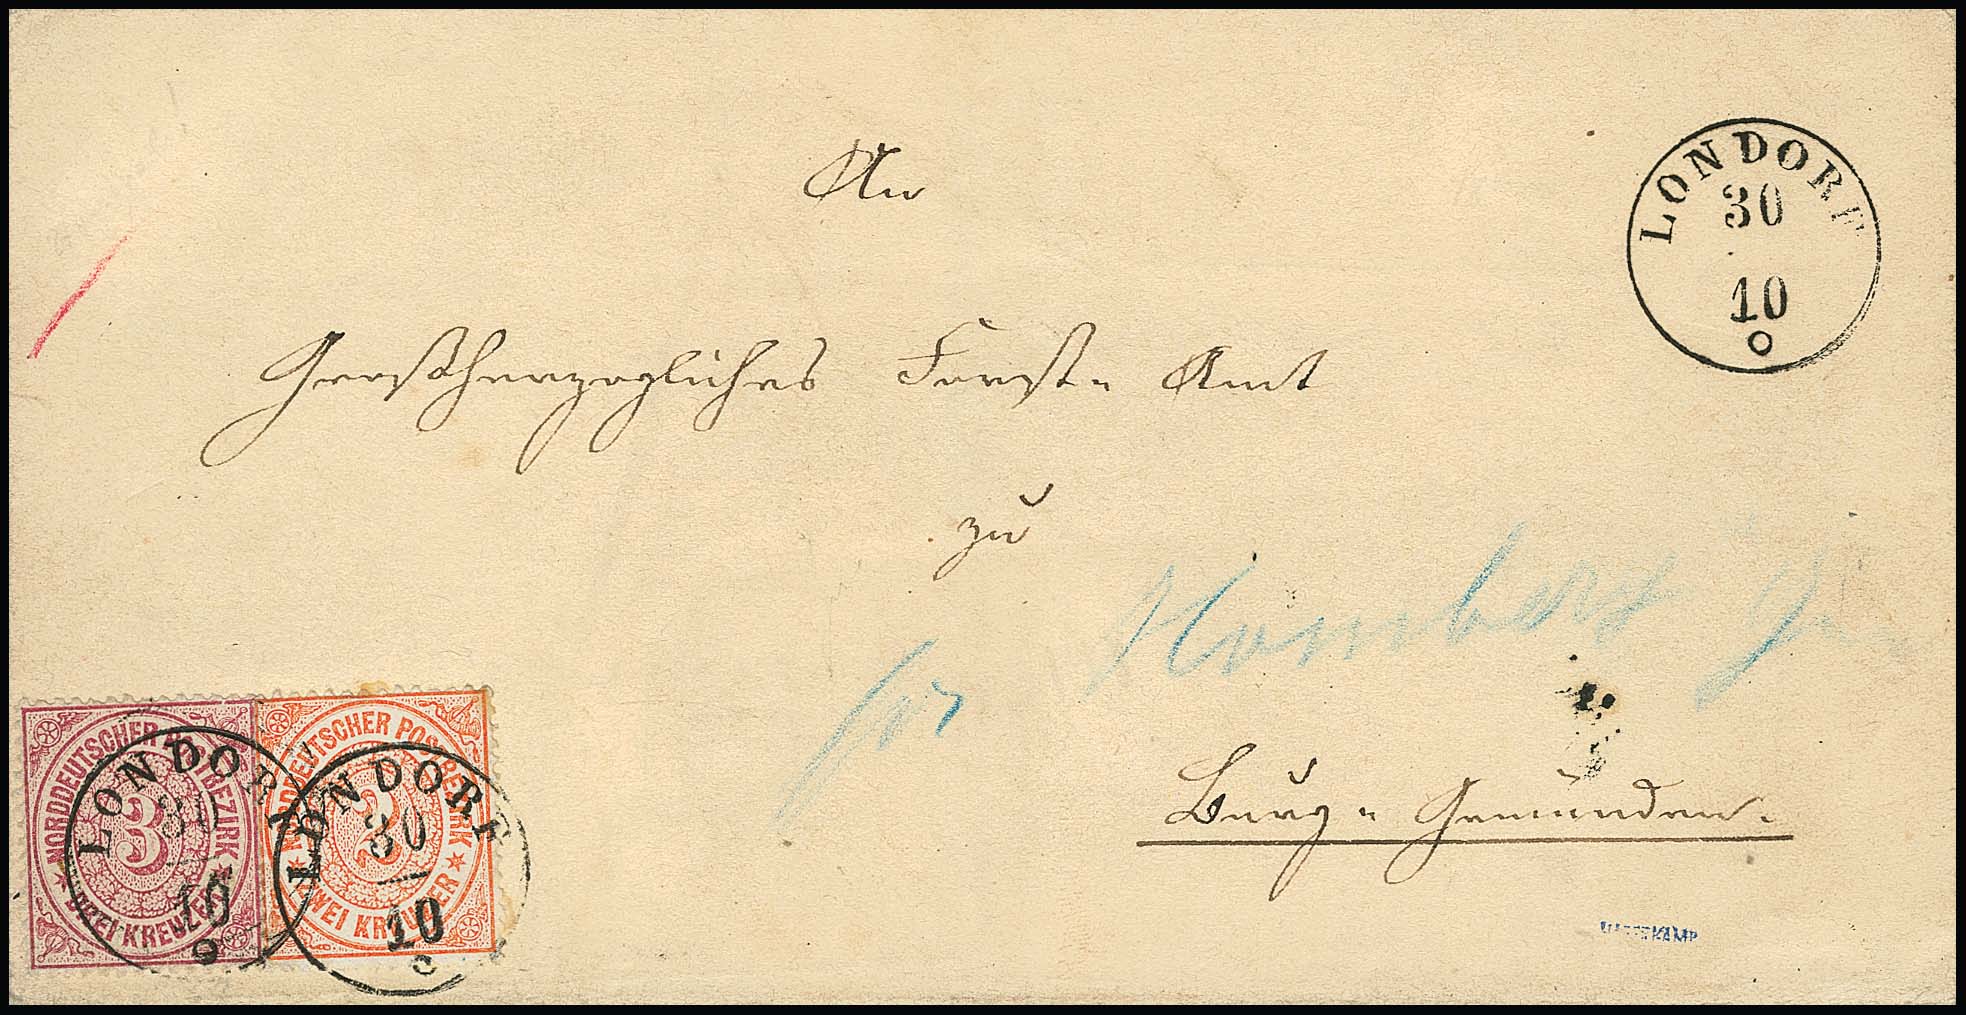 An
LONDORF
30
10
Großherzogliches Forst- Amt
zu
for Homberg
Burg- Gemünden.
NORDDEUTSCHER POSTBEZIRK
3
DREI KREUZER
LONDORF
30
10
NORDDEUTSCHER POSTBEZIRK
2
ZWEI KREUZER
LONDORF
30
10